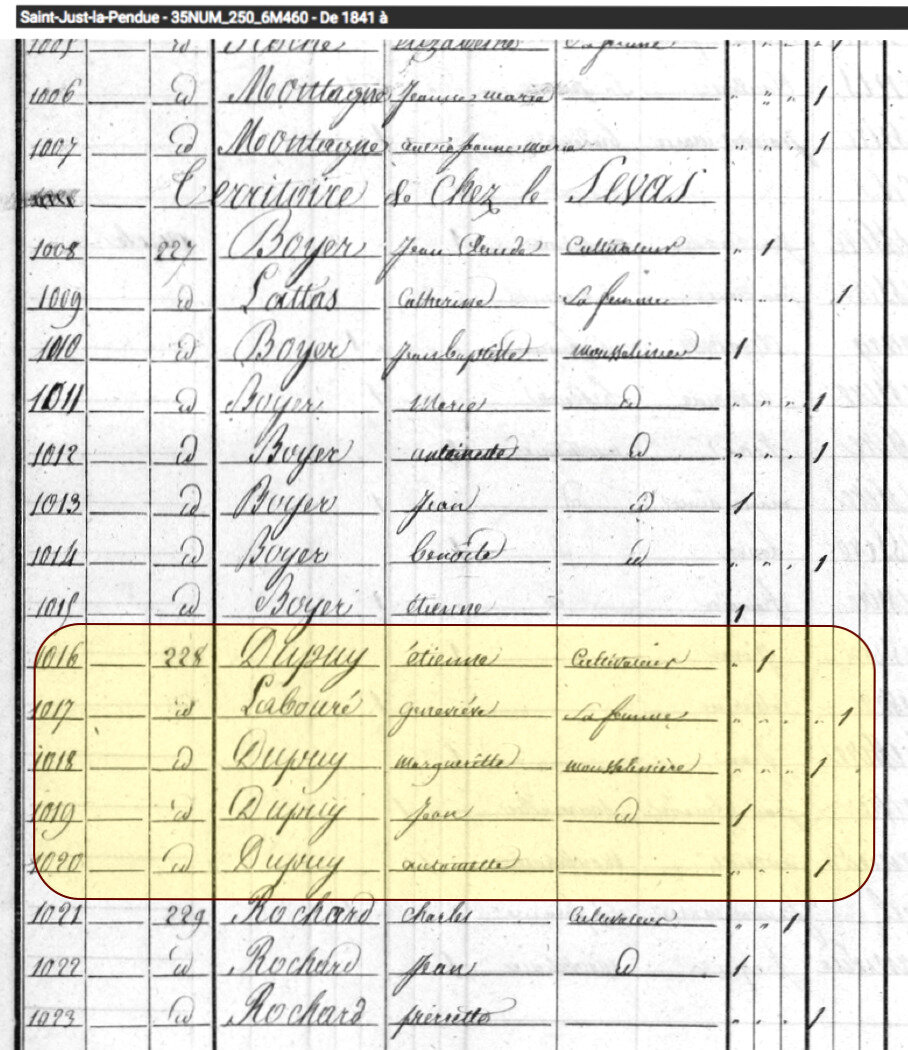 Saint-Just-la-Pendue - 35NUM_250_6M460 - De 1841 à
1005 id
1006 id Montagne Jeanne marie 1
1007 id Montagne Jeanne Marie 1
Territoire de Chez le Sevas
1008 227 Boyer Jean Claude Cultivateur 1
1009 id Lattas Catherine Sa femme 1
1010 id Boyer Jean baptiste 1
1011 id Boyer Marie id 1
1012 id Boyer antoinette id 1
1013 id Boyer Jean id 1
1014 id Boyer benoite id 1
1015 id Boyer étienne 1
1016 228 Dupuy étienne Cultivateur 1
1017 id Labouré geneviéve Sa femme 1
1018 id Dupuy margueritte mousselinière 1
1019 id Dupuy Jean id 1
1020 id Dupuy antoinette 1
1021 229 Rochard charles Cultivateur 1
1022 id Rochard Jean id 1
1023 id Rochard pierrette 1